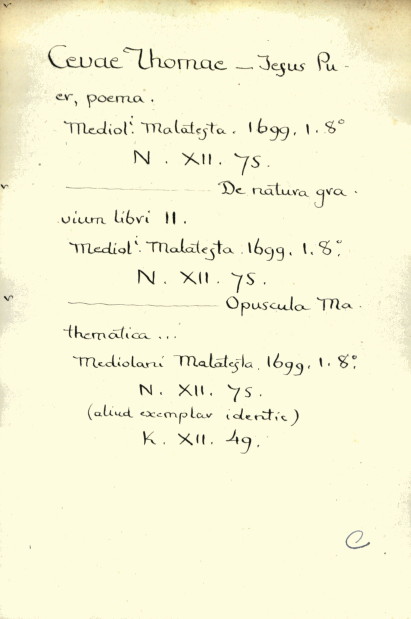 Cevae Thomae — Jesus Pu-
er, poema.
Mediol. Malatesta. 1699. 1. 8°
N. XII. 75.
De natura gra-
vium libri II.
Mediol. Malatesta. 1699. 1. 8°.
N. XII. 75.
Opuscula Ma-
thematica...
Mediolani Malatesta. 1699. 1. 8°.
N. XII. 75.
(aliud exemplar identic)
K. XII. 49.
C